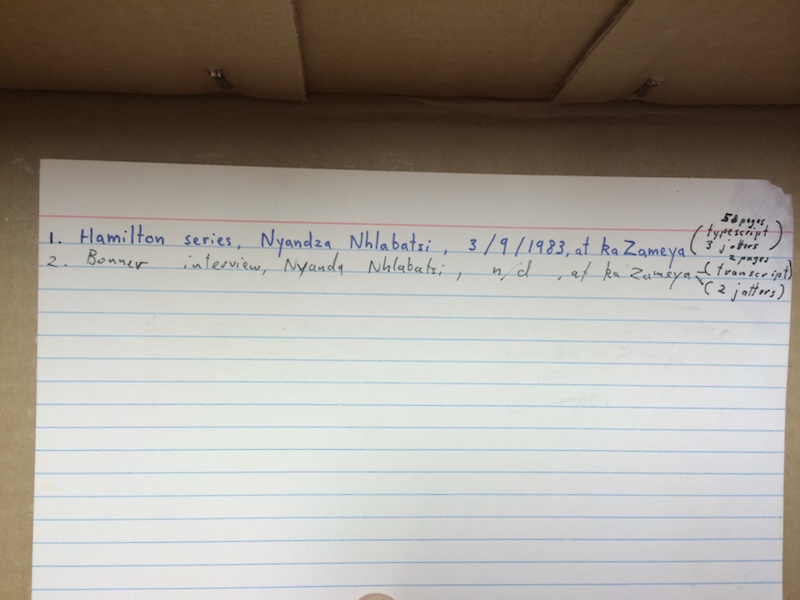 1. Hamilton series, Nyandza Nhlabatsi, 3/9/1983, at ka Zameya (58 pages typescript 3 jotters)
2. Bonner interview, Nyanda Nhlabatsi, n/d, at ka Zameya (2 pages transcript) (2 jotters)